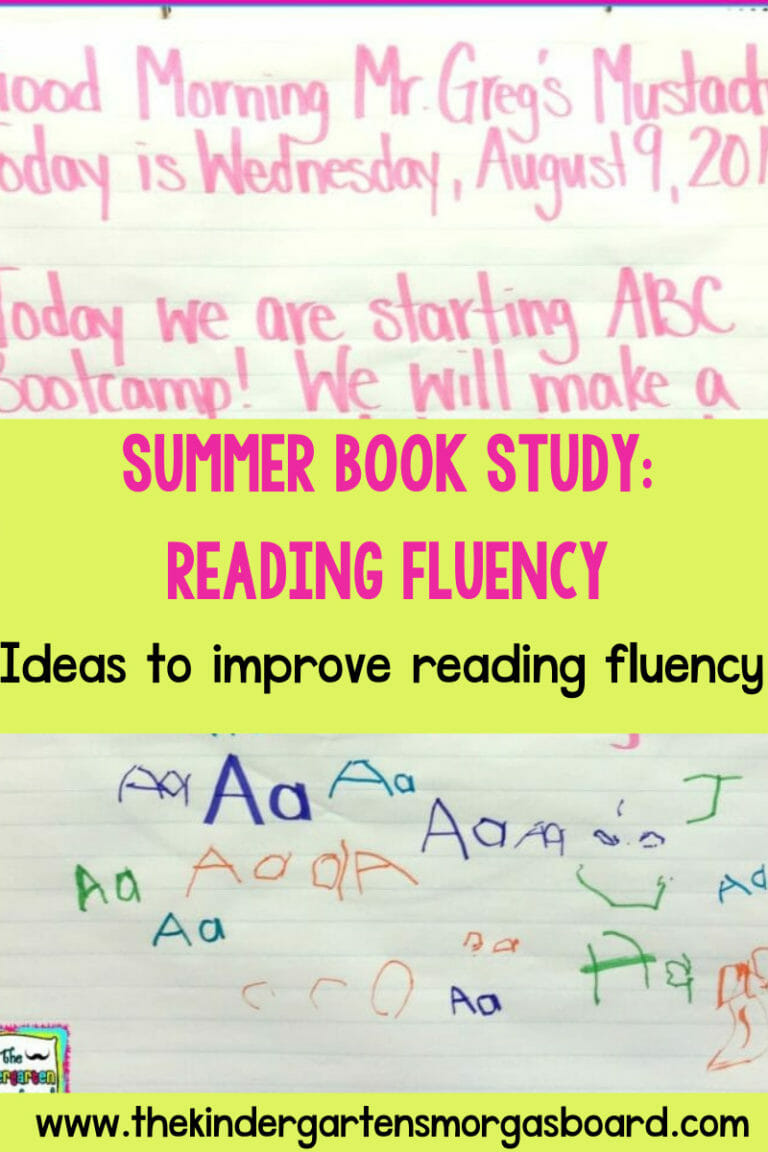 ood Morning Mr. Greg's Mustach
oday is Wednesday, August 9, 201
Today we are starting ABC
Bootcamp! We will make a
SUMMER BOOK STUDY:
READING FLUENCY
Ideas to improve reading fluency
Aa Aa Aa
Aa Aa J
Aa Aa aA Aa
Aa
Aa
Aa
The
ergarten
www.thekindergartensmorgasboard.com